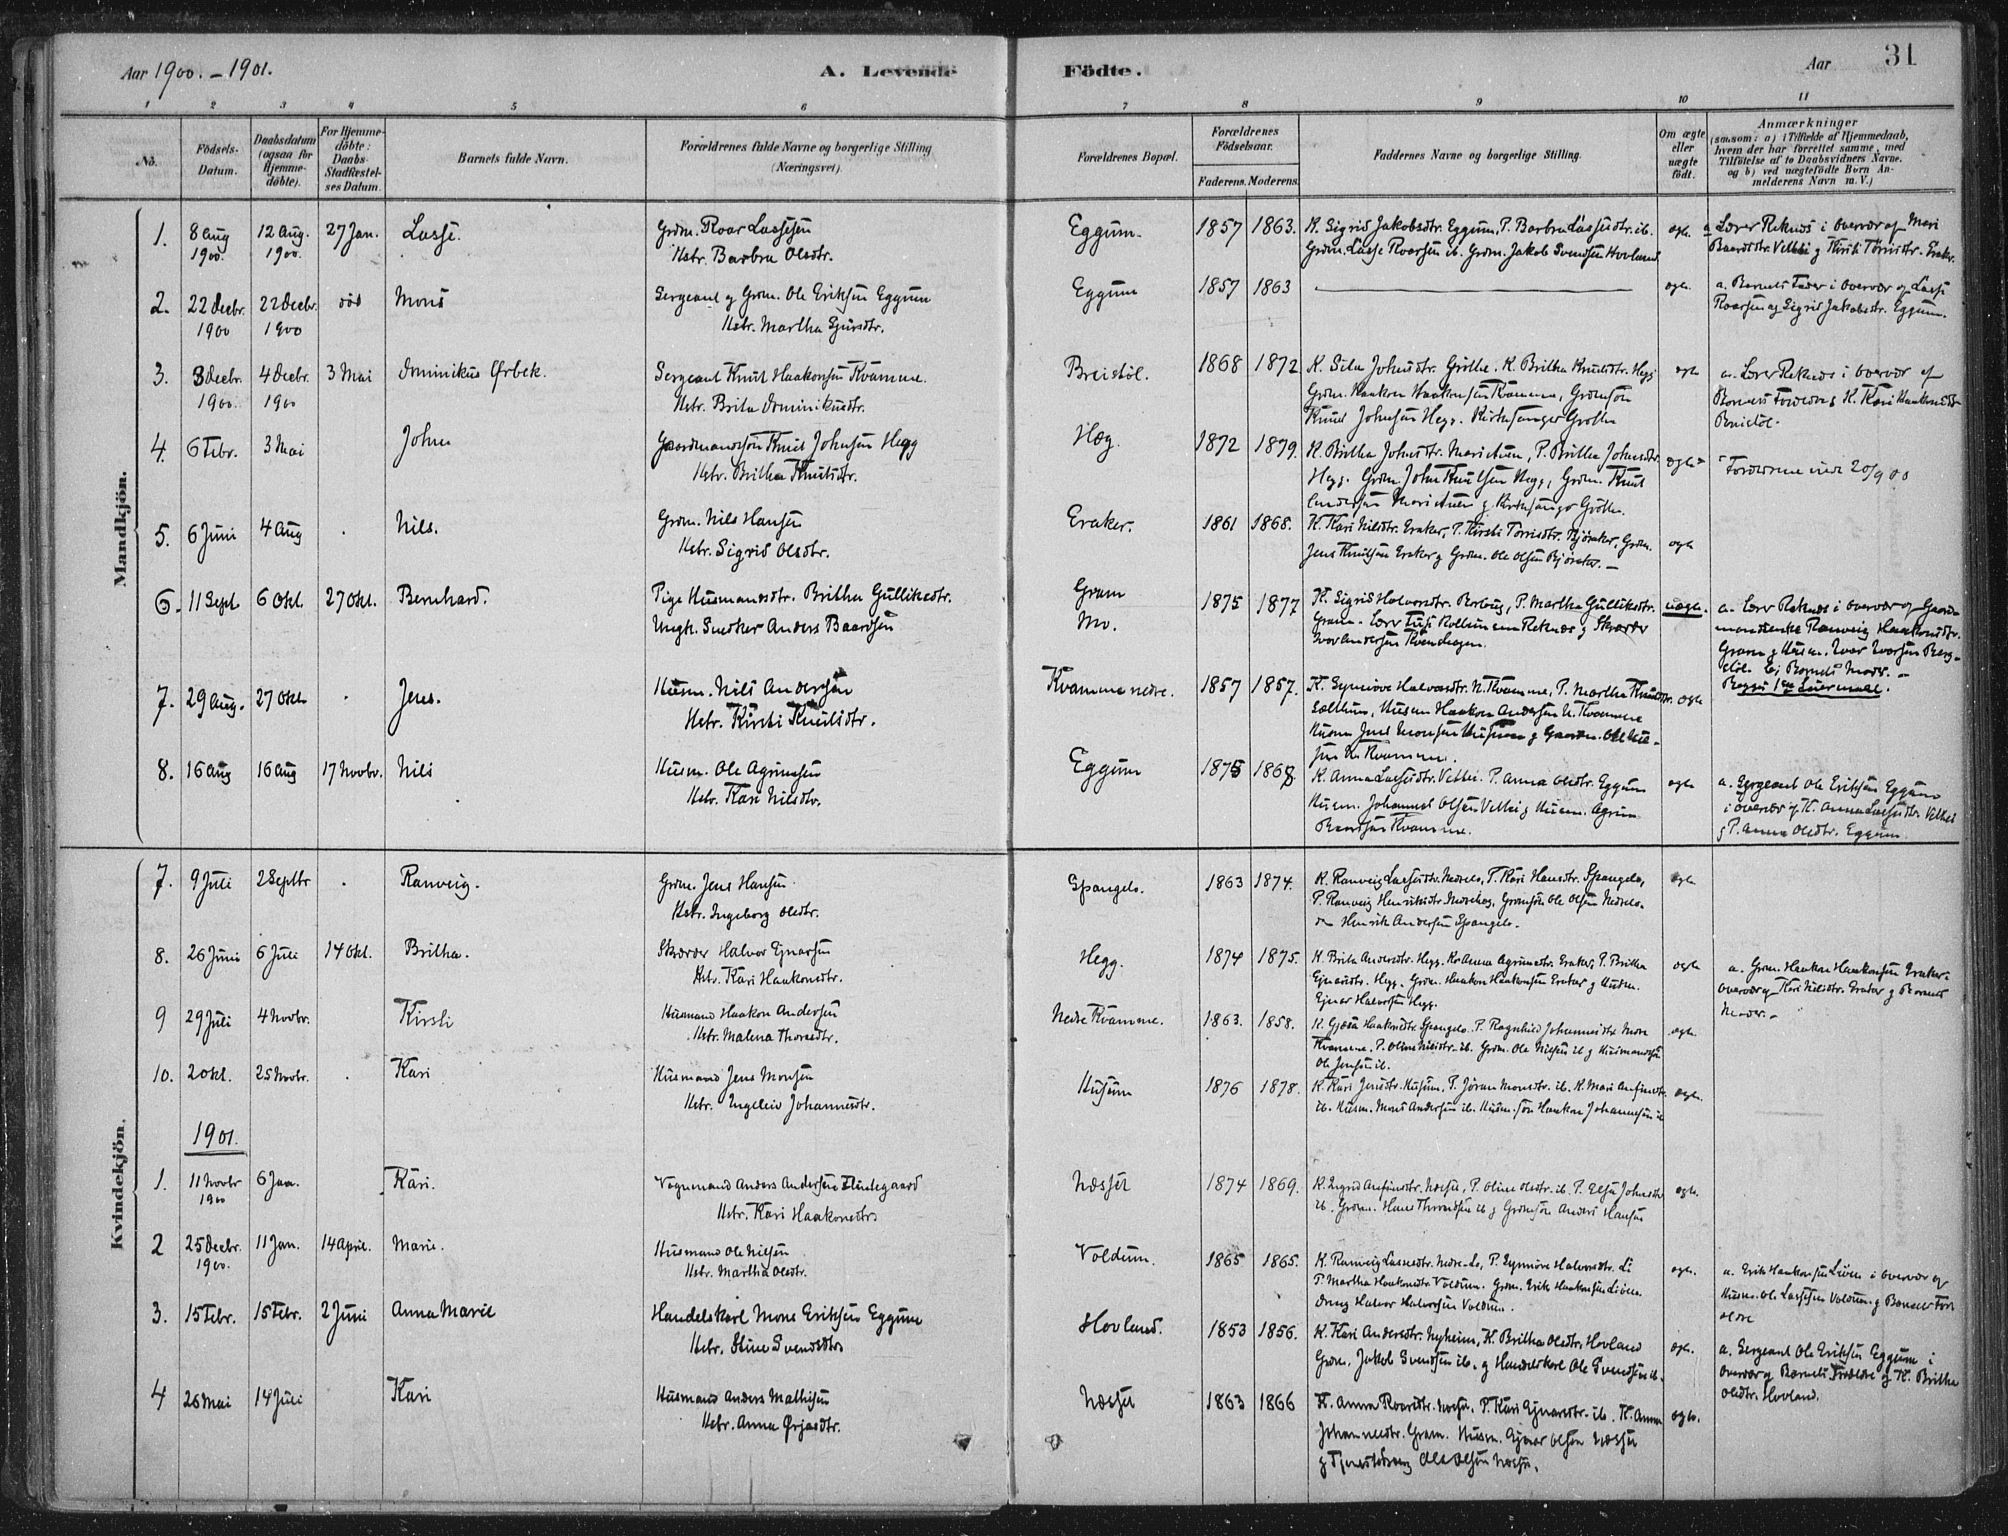 Aar 1900.-1901.
A. Levende Födte.
Aar 31
1 2 3 4 5 6 7 8 9 10 11
No.
Födsels-Datum.
Daabsdatum (ogsaa for Hjemme-döbte).
For Hjemme-döbte: Daabs-Stadfæstel-ses Datum.
Barnets fulde Navn.
Forældrenes fulde Navne og borgerlige Stilling (Næringsvei).
Forældrenes Bopæl.
Forældrenes Födselsaar.
Faderens. Moderens.
Faddernes Navne og borgerlige Stilling.
Om ægte eller uægte födt.
Anmærkninger
(saasom: a) i Tilfælde af Hjemmedaab, hvem der har forrettet samme, med Tilföielse af to Daabsvidners Navne. og b) ved uægtefödte Börn An-melderens Navn m. V.)
Mandkjön.
1. 8 Aug 1900. 12 Aug. 1900. 27 Jan. Lasse.
Grdm. Roar Lassesen
Hstr. Barbra Olsdtr.
Eggum. 1857 1863. K. Sigrid Jakobsdtr. Eggum, P. Barbra Lassesdtr. ib.
Grdm. Lasse Roarsen ib. Grdm. Jakob Svendsen Hovland.
ægte.
a Lærer Reknes i Overvær af Mari
2. 22 Decbr. 1900 22 Decbr. 1900 död Mons
Sergeant og Grdm. Ole Eriksen Eggum
Hstr. Martha
Eggum 1857 1863
ægte.
a. Barnets Fader i Overvær af Lasse
Roarsen og Sigrid Jakobsdtr. Eggum.
3. 3 Decbr. 1900. 4 Decbr. 1900 3 Mai Dominikus Ørbek.
Sergeant Knut Haakonsen Kvamme.
Hstr. Brita Dominikusdtr.
Breistöl. 1868 1872
Grdm. Haakon Haakonsen Kvamme, Grdmsön
Knud Johnsen Hegg. Kirkesanger Gröthe
ægte
a. Lærer Reknes i Overvær af
Barnets Forældre K. Kari Haakonsdtr
Breistöl.
4. 6 Febr. 3 Mai John
Gaardmandssön Knut Johnsen Hegg
Hstr. Britha Knutsdtr.
Hæg. 1872 1879.
Hegg. Grdm. John Knutsen Hegg, Grdm. Knut
ægte
Forældrene viede 20/9 00
5. 6 Juni 4 Aug . Nils.
Grdm. Nils Hansen
Hstr. Sigrid Olsdtr.
Eraker. 1861 1868. K. Kari Nilsdtr. Eraker, P. Kirsti Torrisdtr. Björaker, Grdm.
Jens Knutsen Eraker og Grdm. Ole Olsen Björaker.
ægte
6. 11 Sept. 6 Okt. 27 Okt. Bernhard.
Pige Husmandsdtr. Britha Gulliksdtr.
Ungk. Snedker Anders Baardsen
Gram
Mo. 1875 1877 K. Sigrid Halvorsdtr. Borlaug, P. Martha Gulliksdtr.
uægte.
a. Lærer Reknes i Overvær af Gaard-
mandsenke Ranveig Haakonsdtr.
Gram og Husm. Ivar Ivarsen Berg-
stöl. b) Barnets Moder.
Begges 1ste Leiermaal.
7. 29 Aug. 27 Okt . Jens.
Husm. Nils Andersen
Hstr. Kirsti Knutsdtr.
Kvamme nedre. 1857 1857. K. Synnöve Halvorsdtr. N. Kvamme, P. Martha Knutsdtr.
Husm Haakon Andersen N. Kvamme
Husm Jens Monsen Husum og Gaardm. Ole Nil-
sen N. Kvamme.
ægte
8. 16 Aug 16 Aug 17 Novbr. Nils
Husm. Ole Agrimsen
Hstr. Kari Nilsdtr.
Eggum 1875 1868. K. Anna Lassesdtr. Vettei. P. Anna Olsdtr. Eggum
Husm. Johannes Olsen Vettei og Husm. Agrim
Baardsen Kvamme.
ægte
a. Sergeant Ole Eriksen Eggum
i Overvær af K. Anna Lassesdtr. Vettei
og P. Anna Olsdtr. Eggum.
Kvindekjön.
7. 9 Juli 2 Septbr . Ranveig.
Grdm. Jens Hansen
Hstr. Ingeborg Olsdtr.
Spangelo. 1863 1874. K. Ranveig Lassesdtr. Nedrelo, P. Kari Hansdtr. Spangelo,
Henrik Andersen Spangelo.
ægte
8. 26 Juni 6 Juli 14 Okt. Britha.
Skræder Halvor Ejnarsen
Hstr. Kari Haakonsdtr.
Hegg. 1874 1875. K. Brita Andersdtr. Hegg. K. Anna Agrimsdtr. Eraker, P. Britha
Ejnarsdtr. Hegg. Grdm. Haakon Haakonsen Eraker og Husm.
Ejnar Halvorsen Hegg.
ægte
a. Grdm. Haakon Haakonsen Eraker i
Overvær af Kari Nilsdtr. Eraker og Barnets
Moder.
9 29 Juli 4 Novbr. Kirsti
Husmand Haakon Andersen
Hstr. Malena Thorsdtr.
Nedre Kvamme. 1863. 1858. K. Gjøda Haakonsdtr. Spangelo. P. Ragnhild Johannesdtr. Nedre
Kvamme, P. Oline Nilsdtr. ib. Grdm. Ole Nilsen ib og Husmandssön
Ole Jensen ib.
ægte
10. 2 Okt. 25 Novbr. . Kari
Husmand Jens Monsen
Hstr. Ingeleiv Johannesdtr.
Husum 1876 1878. K. Kari Jensdtr. Husum, P. Jöran Monsdtr. ib. K. Mari Anfinsdtr.
ib. Husm. Mons Andersen ib. Husm. sön Haakon Johannesen ib
ægte.
1901.
1. 11 Novbr 1900 6 Jan. Kari.
Vognmand Anders Andersen Lindegaard
Hstr. Kari Haakonsdtr.
Næsset 1874 1869. K. Ingrid Anfinsdtr. Næsse, P. Oline Olsdtr. ib. P. Elsa Johnsdtr
ib. Grdm. Hans Throndsen ib og Grdmsön Anders Hansen
ægte.
2 25 Decbr. 1900. 11 Jan. 14 April. Marie.
Husmand Ole Nilsen
Hstr. Martha Olsdtr.
Voldum. 1865 1865. K. Ranveig Lassesdtr. Nedre-Lo, P. Synnöve Halvorsdtr. Li
P. Martha Haakonsdtr. Voldum. Grdm. Erik Haakonsen Liöen
Dreng Halvor Halvorsen Voldum.
ægte.
a. Erik Haakonsen Liöen i Overvær af
Husm. Ole Lassesen Voldum og Barnets For-
ældre
3. 15 Febr. 15 Febr. 2 Juni Anna Marie
Handelskarl Mons Eriksen Eggum
Hstr. Stine Svendsdtr.
Hovland. 1853 1856. K. Kari Andersdtr. Nyheim, K. Britha Olsdtr. Hovland
Grdm. Jakob Svendsen ib. og Handelskarl Ole Svendsen ib.
ægte.
a. Sergeant Ole Eriksen Eggum i
Overvær af Barnets Forældre og K. Britha
Olsdtr. Hovland.
4 26 Mai 14 Juli Kari
Husmand Anders Mathisen
Hstr. Anna Ørjasdtr.
Næsset 1863 1866 K. Anna Roarsdtr. Næsse, P. Kari Ejnarsdtr. ib. K. Anna
Johannesdtr. Gram. Husm. Ejnar Olsen Næsset
og Tjenestedreng Ole Olsen Næsse.
ægte.